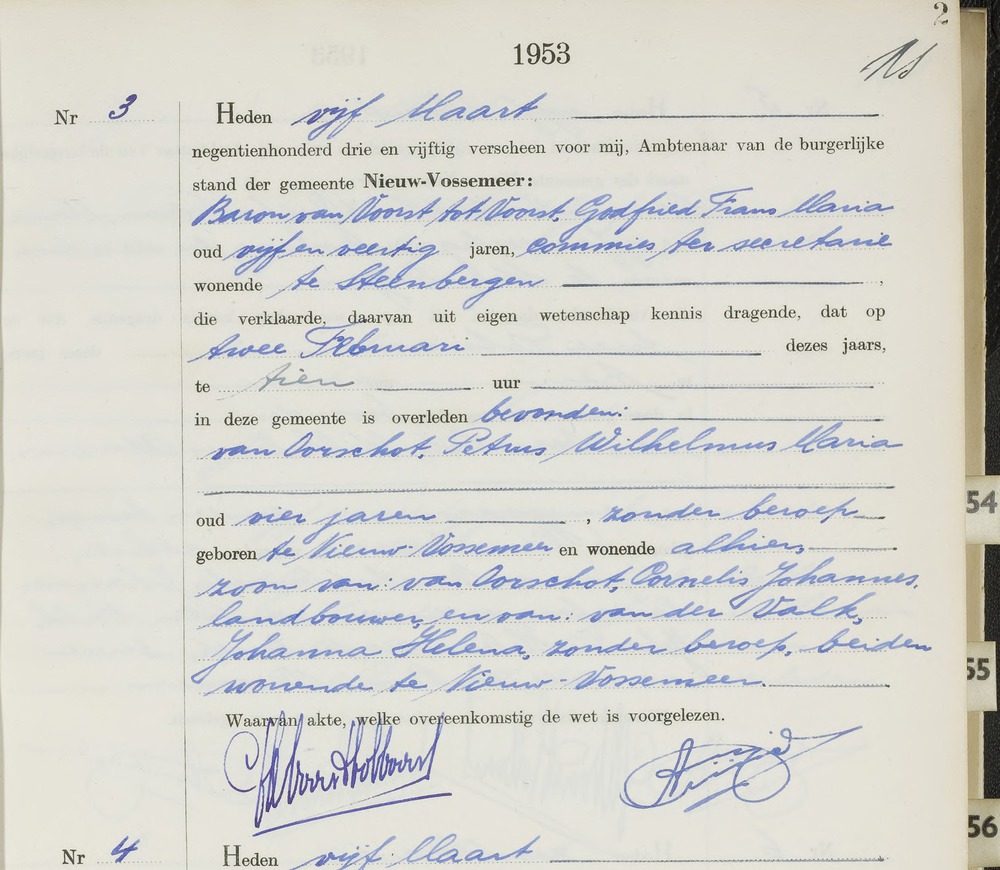 2
1953
Nr 3
Heden vijf Maart
negentienhonderd drie en vijftig verscheen voor mij, Ambtenaar van de burgerlijke
stand der gemeente Nieuw-Vossemeer:
Baron van Voorst tot Voorst, Godfried Frans Maria
oud vijf en veertig jaren, commies ter secretarie
wonende te Steenbergen ,
die verklaarde, daarvan uit eigen wetenschap kennis dragende, dat op
twee Februari dezes jaars,
te tien uur
in deze gemeente is overleden bevonden:
van Oorschot, Petrus Wilhelmus Maria
oud vier jaren , zonder beroep
geboren te Nieuw-Vossemeer en wonende alhier,
zoon van: van Oorschot, Cornelis Johannes,
landbouwer, en van: van der Valk,
Johanna Helena, zonder beroep, beiden
wonende te Nieuw-Vossemeer.
Waarvan akte, welke overeenkomstig de wet is voorgelezen.
Nr 4
Heden vijf Maart
54
55
56